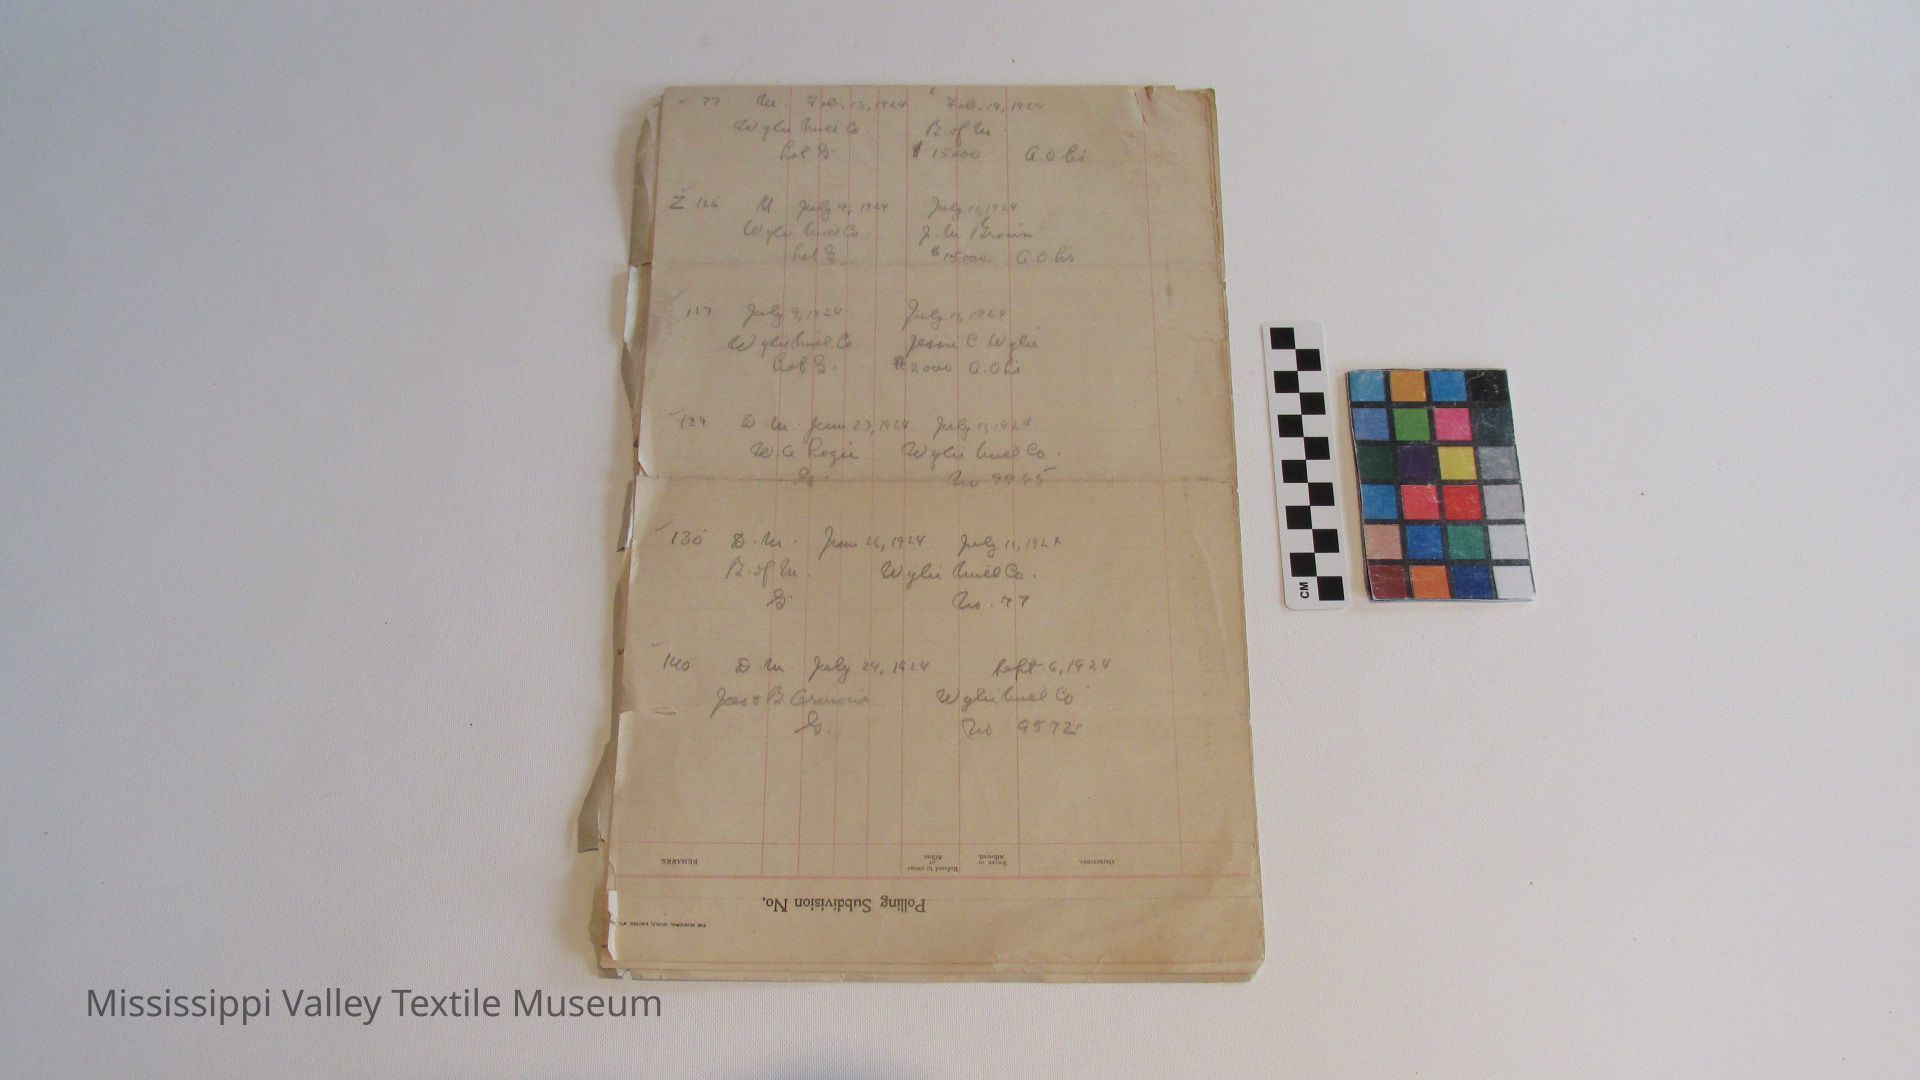 77 M. Feb. 13, 1924 Feb. 19, 1924
Wylie Mill Co. B. of M.
Lot G. $15000 A.O.
Z 126 M July 9, 1924 July 11, 1924
Wylie Mill Co. J. M Brown
Lot G. $15000 A.O.
127 July 9, 1924 July 11, 1924
Wylie Mill Co Jessie C Wylie
Lot G. $2000 A.O.
129 D. M. June 23, 1924 July 11, 1924
W. A. Wylie Mill Co.
G. No.
130 D. M. June 26, 1924 July 11, 1924
B. of M. Wylie Mill Co.
G. No. 77
140 D M. July 24, 1924 Sept. 6, 1924
Wylie Mill Co
G. No 9572
REMARKS.
Refused to swear or Affirm
Sworn or Affirmed.
OBJECTIONS.
Polling Subdivision No.
CM
Mississippi Valley Textile Museum